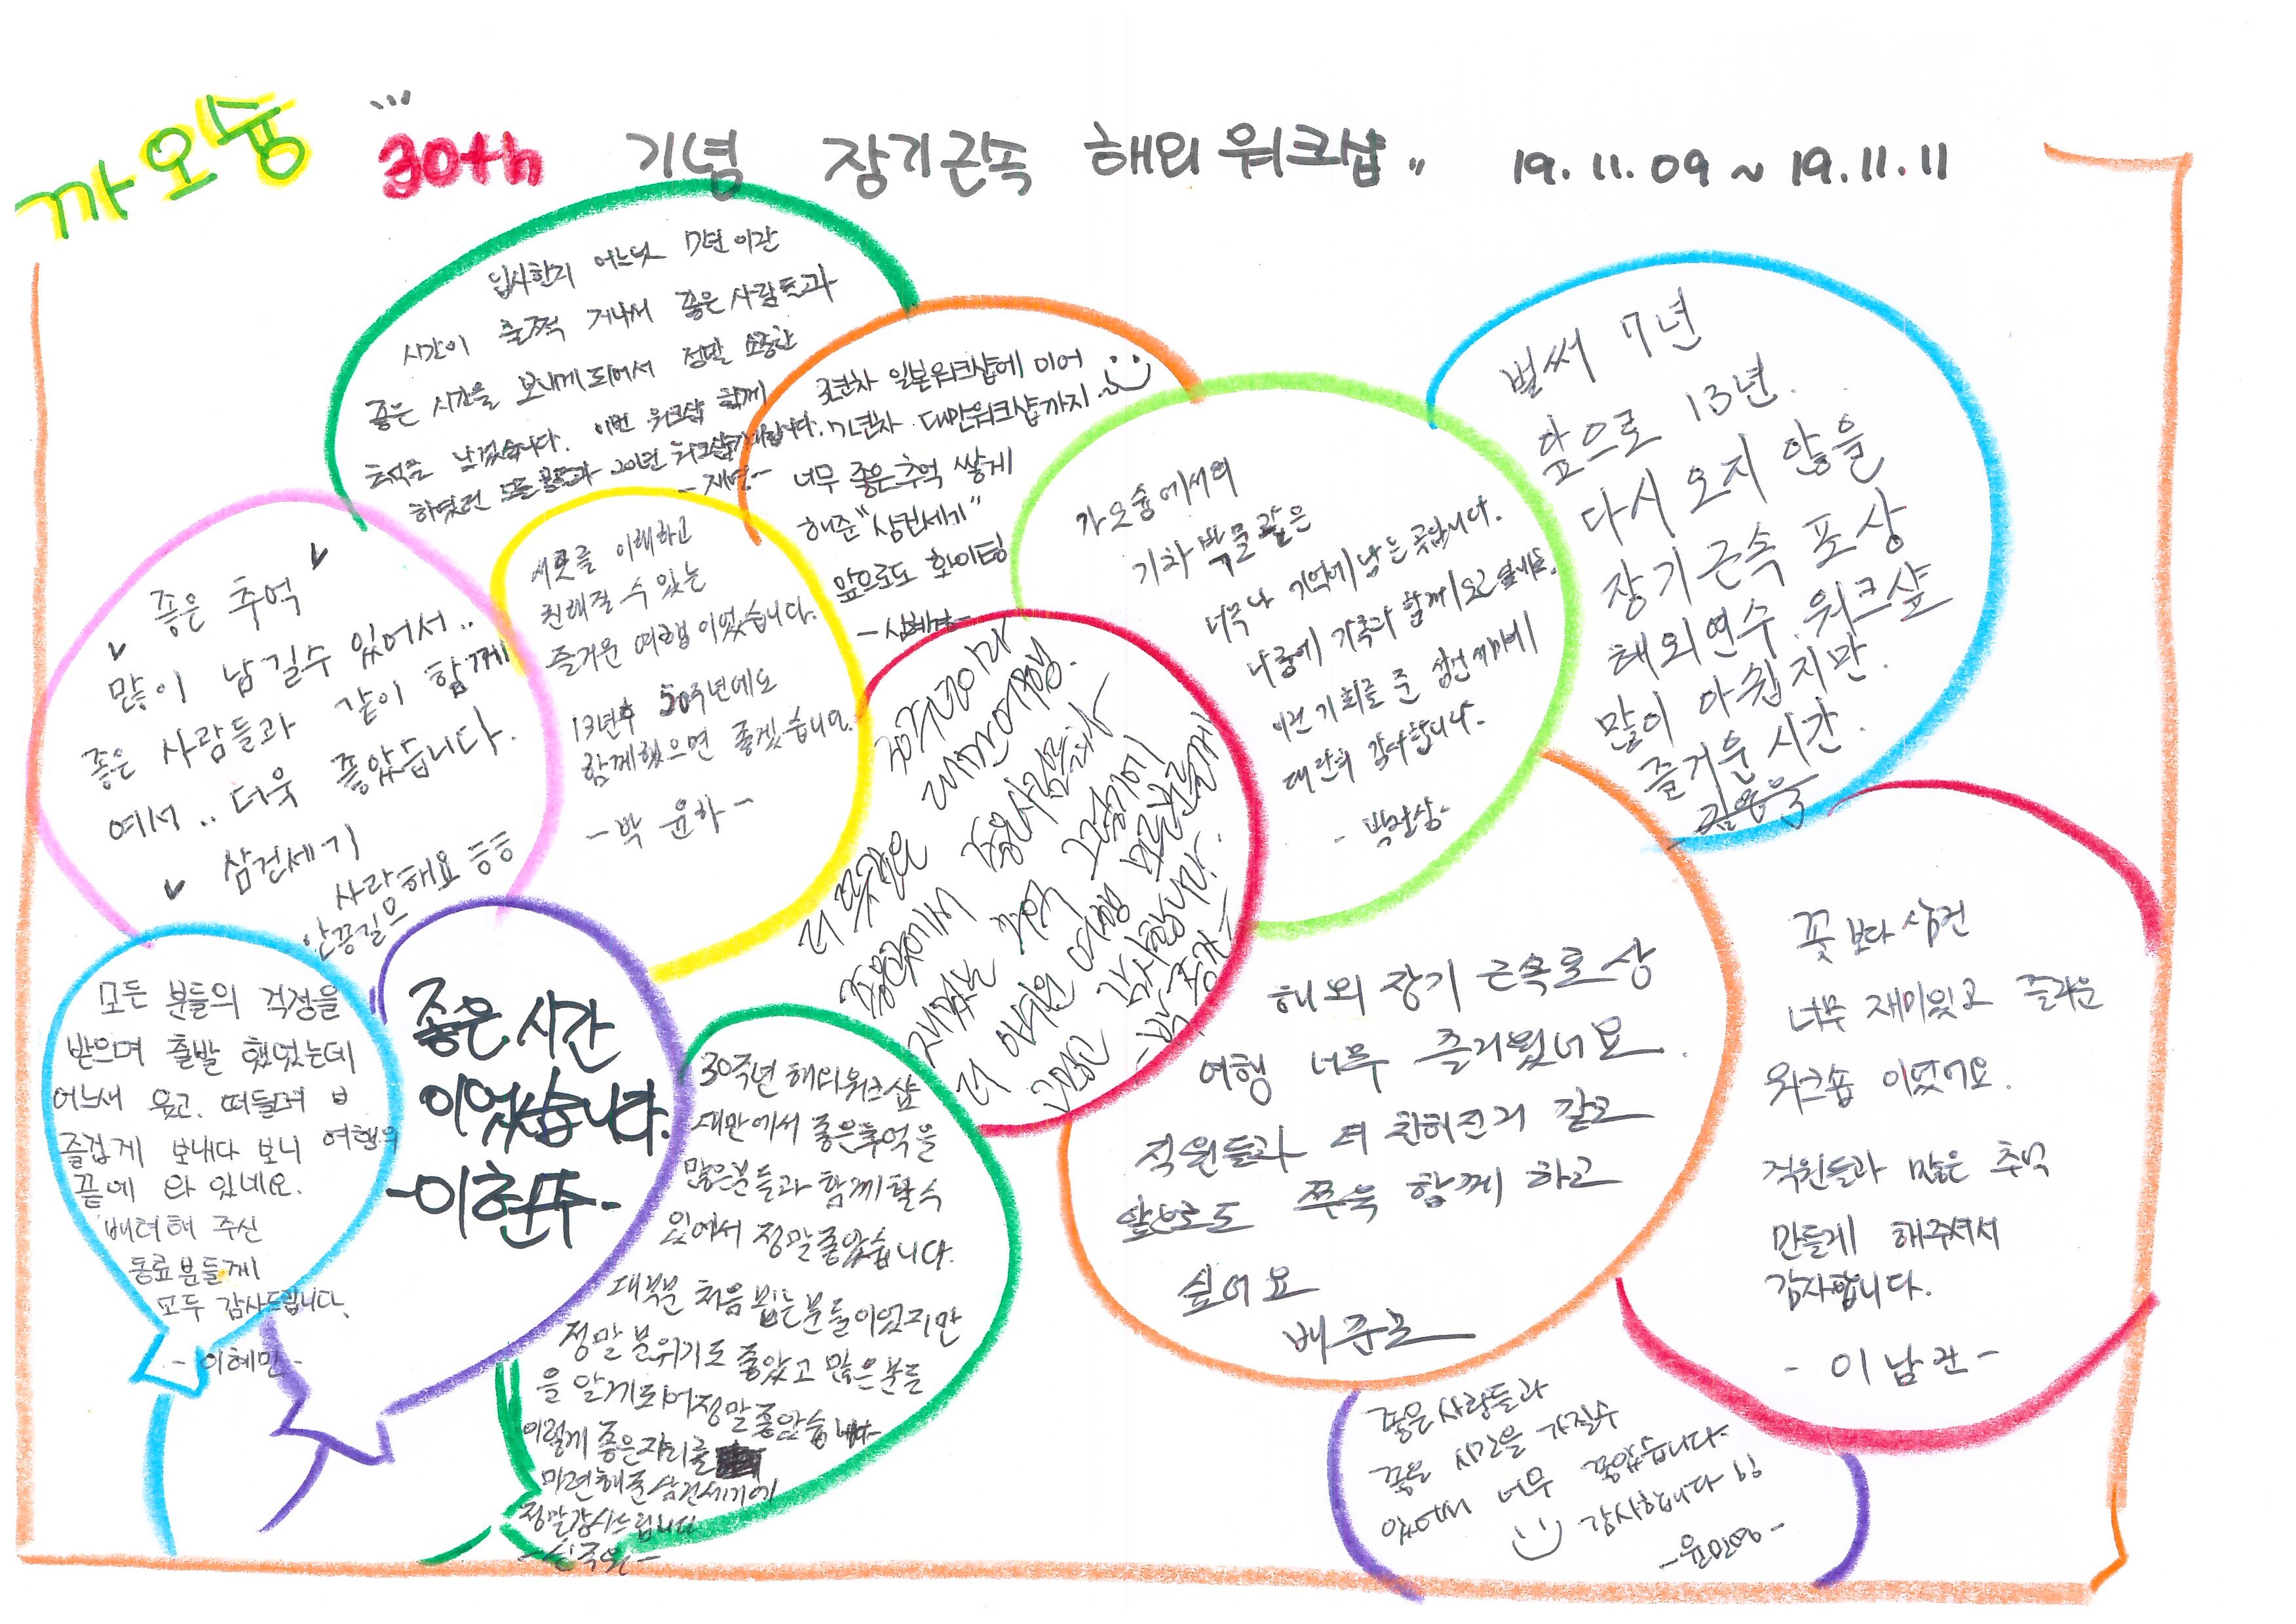 까오슝 "30th 기념 장기근속 해외워크샵" 19.11.09 ~ 19.11.11
입사한지 어느덧 7년이란
시간이 훌쩍 지나서 좋은 사람들과
좋은 시간을 보내게 되어서 정말 소중한
추억을 남겼습니다. 이번 워크샵 함께
하였던 모든 분들과 20년 워크샵 기대합니다.
-재명-
3년차 일본워크샵에 이어
7년차 대만워크샵까지
너무 좋은 추억 쌓게
해준 "삼건세기"
앞으로도 화이팅
가오슝에서의
기차 박물관은
너무나 기억에 남는 곳입니다.
나중에 가족과 함께 오고 싶네요.
이런 기회를 준 삼건세기에
대단히 감사합니다.
-박찬상-
벌써 7년
앞으로 13년.
다시 오지 않을
장기근속 포상
해외연수. 워크샾
많이 아쉽지만.
즐거운 시간.
좋은 추억
많이 남길수 있어서..
좋은 사람들과 같이 함께
여서.. 더욱 좋았습니다.
삼건세기
사랑해요 등등
서로를 이해하고
친해질 수 있는
즐거운 여행이었습니다.
13년후 20주년에도
함께했으면 좋겠습니다.
-박윤하-
30주년이라
더 뜻깊은 대만여행.
좋은곳에서 좋은사람들과
재밌는 추억
더 아쉬운 여행 모든분들께
고맙고 감사합니다.
모든 분들의 걱정을
받으며 출발 했었는데
어느새 웃고. 떠들며
즐겁게 보내다 보니 여행의
끝에 와 있네요.
배려해 주신
동료분들께
모두 감사드립니다.
-이혜민-
좋은 시간
이었습니다.
30주년 해외워크샵
대만에서 좋은추억을
많은분들과 함께할수
있어서 정말좋았습니다.
대부분 처음 뵙는분들이었지만
정말 분위기도 좋았고 많은분들
을 알게되어정말좋았습니다
이렇게 좋은자리를
마련해준삼건세기에
정말감사드립니다
해외 장기 근속포상
여행 너무 즐거웠네요.
직원들과 더 친해진거 같고
앞으로도 쭈욱 함께 하고
싶어요
꽃보다 삼건
너무 재미있고 즐거운
워크숍 이었어요.
직원들과 많은 추억
만들게 해주셔서
감사합니다.
-이남관-
좋은사람들과
좋은 시간을 가질수
있어서 너무 좋았습니다.
감사합니다